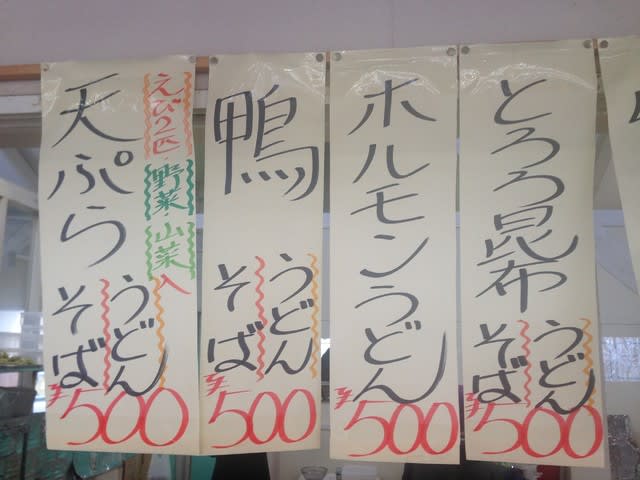 天ぷら
えび2匹・野菜・山菜入
うどん
そば
¥500
鴨
うどん
そば
¥500
ホルモンうどん
¥500
とろろ昆布
うどん
そば
¥500